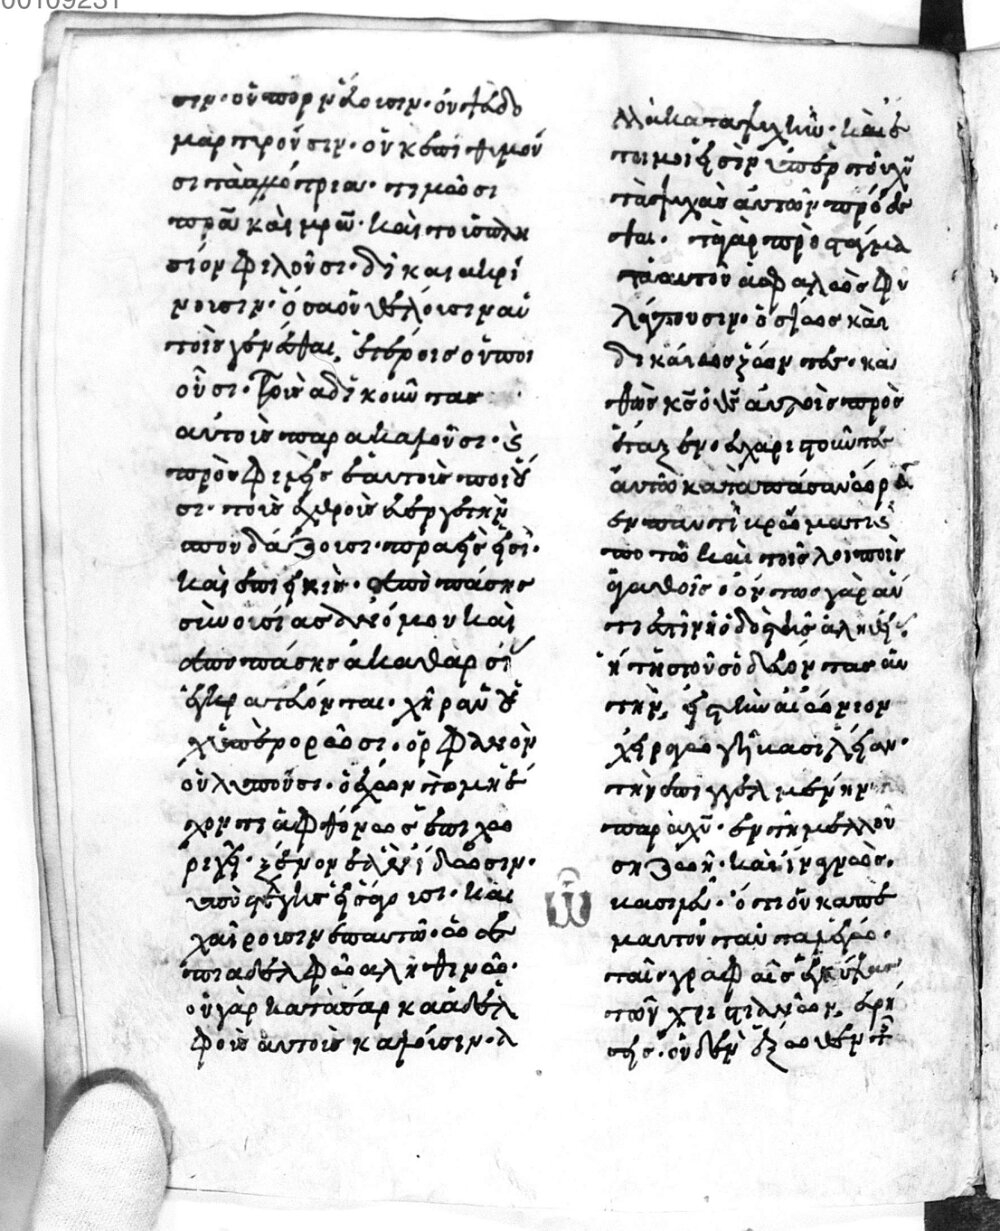 σιν· οὐ πορνεύουσιν· οὐ ψευδο
μαρτυροῦσιν· οὐκ ἐπιθυμοῦ
σι τὰ ἀλλότρια· τιμῶσι
πρᾶ καὶ μρᾶ· καὶ τοὺς πλη
σίον φιλοῦσι· δίκαια κρί
νουσιν· ὅσα οὐ θέλουσιν αὐ
τοῖς γενέσθαι, ἑτέροις οὐ ποι
οῦσι· τοὺς ἀδικοῦντας
αὐτοὺς παρακαλοῦσι· καὶ
προσφιλεῖς ἑαυτοῖς ποιοῦ
σι· τοὺς ἐχθροὺς εὐεργετεῖν
σπουδάζουσι· πραεῖς εἰσί·
καὶ ἐπιεικεῖς· ἀπὸ πάσης
συνουσίας ἀνόμου καὶ
ἀπὸ πάσης ἀκαθαρσί
ἐγκρατεύονται· χήραν οὐ
χ ὑπερορῶσι· ὀρφανὸν
οὐ λυποῦσι· ὁ ἔχων τῶ μὴ ἔ
χοντι ἀφθόνως ἐπιχο
ρηγεῖ· ξένον ἐὰν ἴδωσιν·
ὑπὸ στέγην εἰσάγουσι· καὶ
χαίρουσιν ἐπαυτῶ· ὡς ἐ
πι ἀδελφῶ ἀληθινῶ·
οὐ γὰρ κατὰ σάρκα ἀδελ
φοὺς αὐτοὺς καλοῦσιν· ἀλ
λὰ κατα ψυχήν· καὶ ἕ
τοιμοι εἰσὶν ὑπὲρ τοῦ χῦ
τὰς ψυχὰς αὐτῶν προέσ
θαι· τὰ γὰρ προστάγμα
τα αὐτοῦ ἀσφαλῶς φυ
λάττουσιν· ὁσίως καὶ
δικαίως ζῶντες· κα
θὼς κς ὁ θς αὐτοῖς προσ
έταξεν· εὐχαριστοῦντες
αὐτῶ κατὰ πᾶσαν ὥραν
ἐν παντὶ βρώματι καὶ
ποτῶ καὶ τοῖς λοιποῖς
ἀγαθοῖς· ὄντως γὰρ αὕ
τη ἐστὶν ἡ ὁδὸς τῆς ἀληθεί
ἡ τοὺς ὁδεύοντας αὐ
τὴν, εἰς τὴν αἰώνιον
χειραγωγεῖ βασιλείαν·
τὴν ἐπηγγελμένην
παρὰ χῦ· ἐν τῆ μελλού
ση ζωῆ· καὶ ἵνα γνῶς,
βασιλεῦ· ὅτι οὐκ ἀπ ἐ
μαυτοῦ ταῦτα λέγω·
ταῖς γραφαῖς ἐγκύψας
τῶν χριστιανῶν, εὑρή
σεις· οὐδὲν ἔξωθεν τῆς